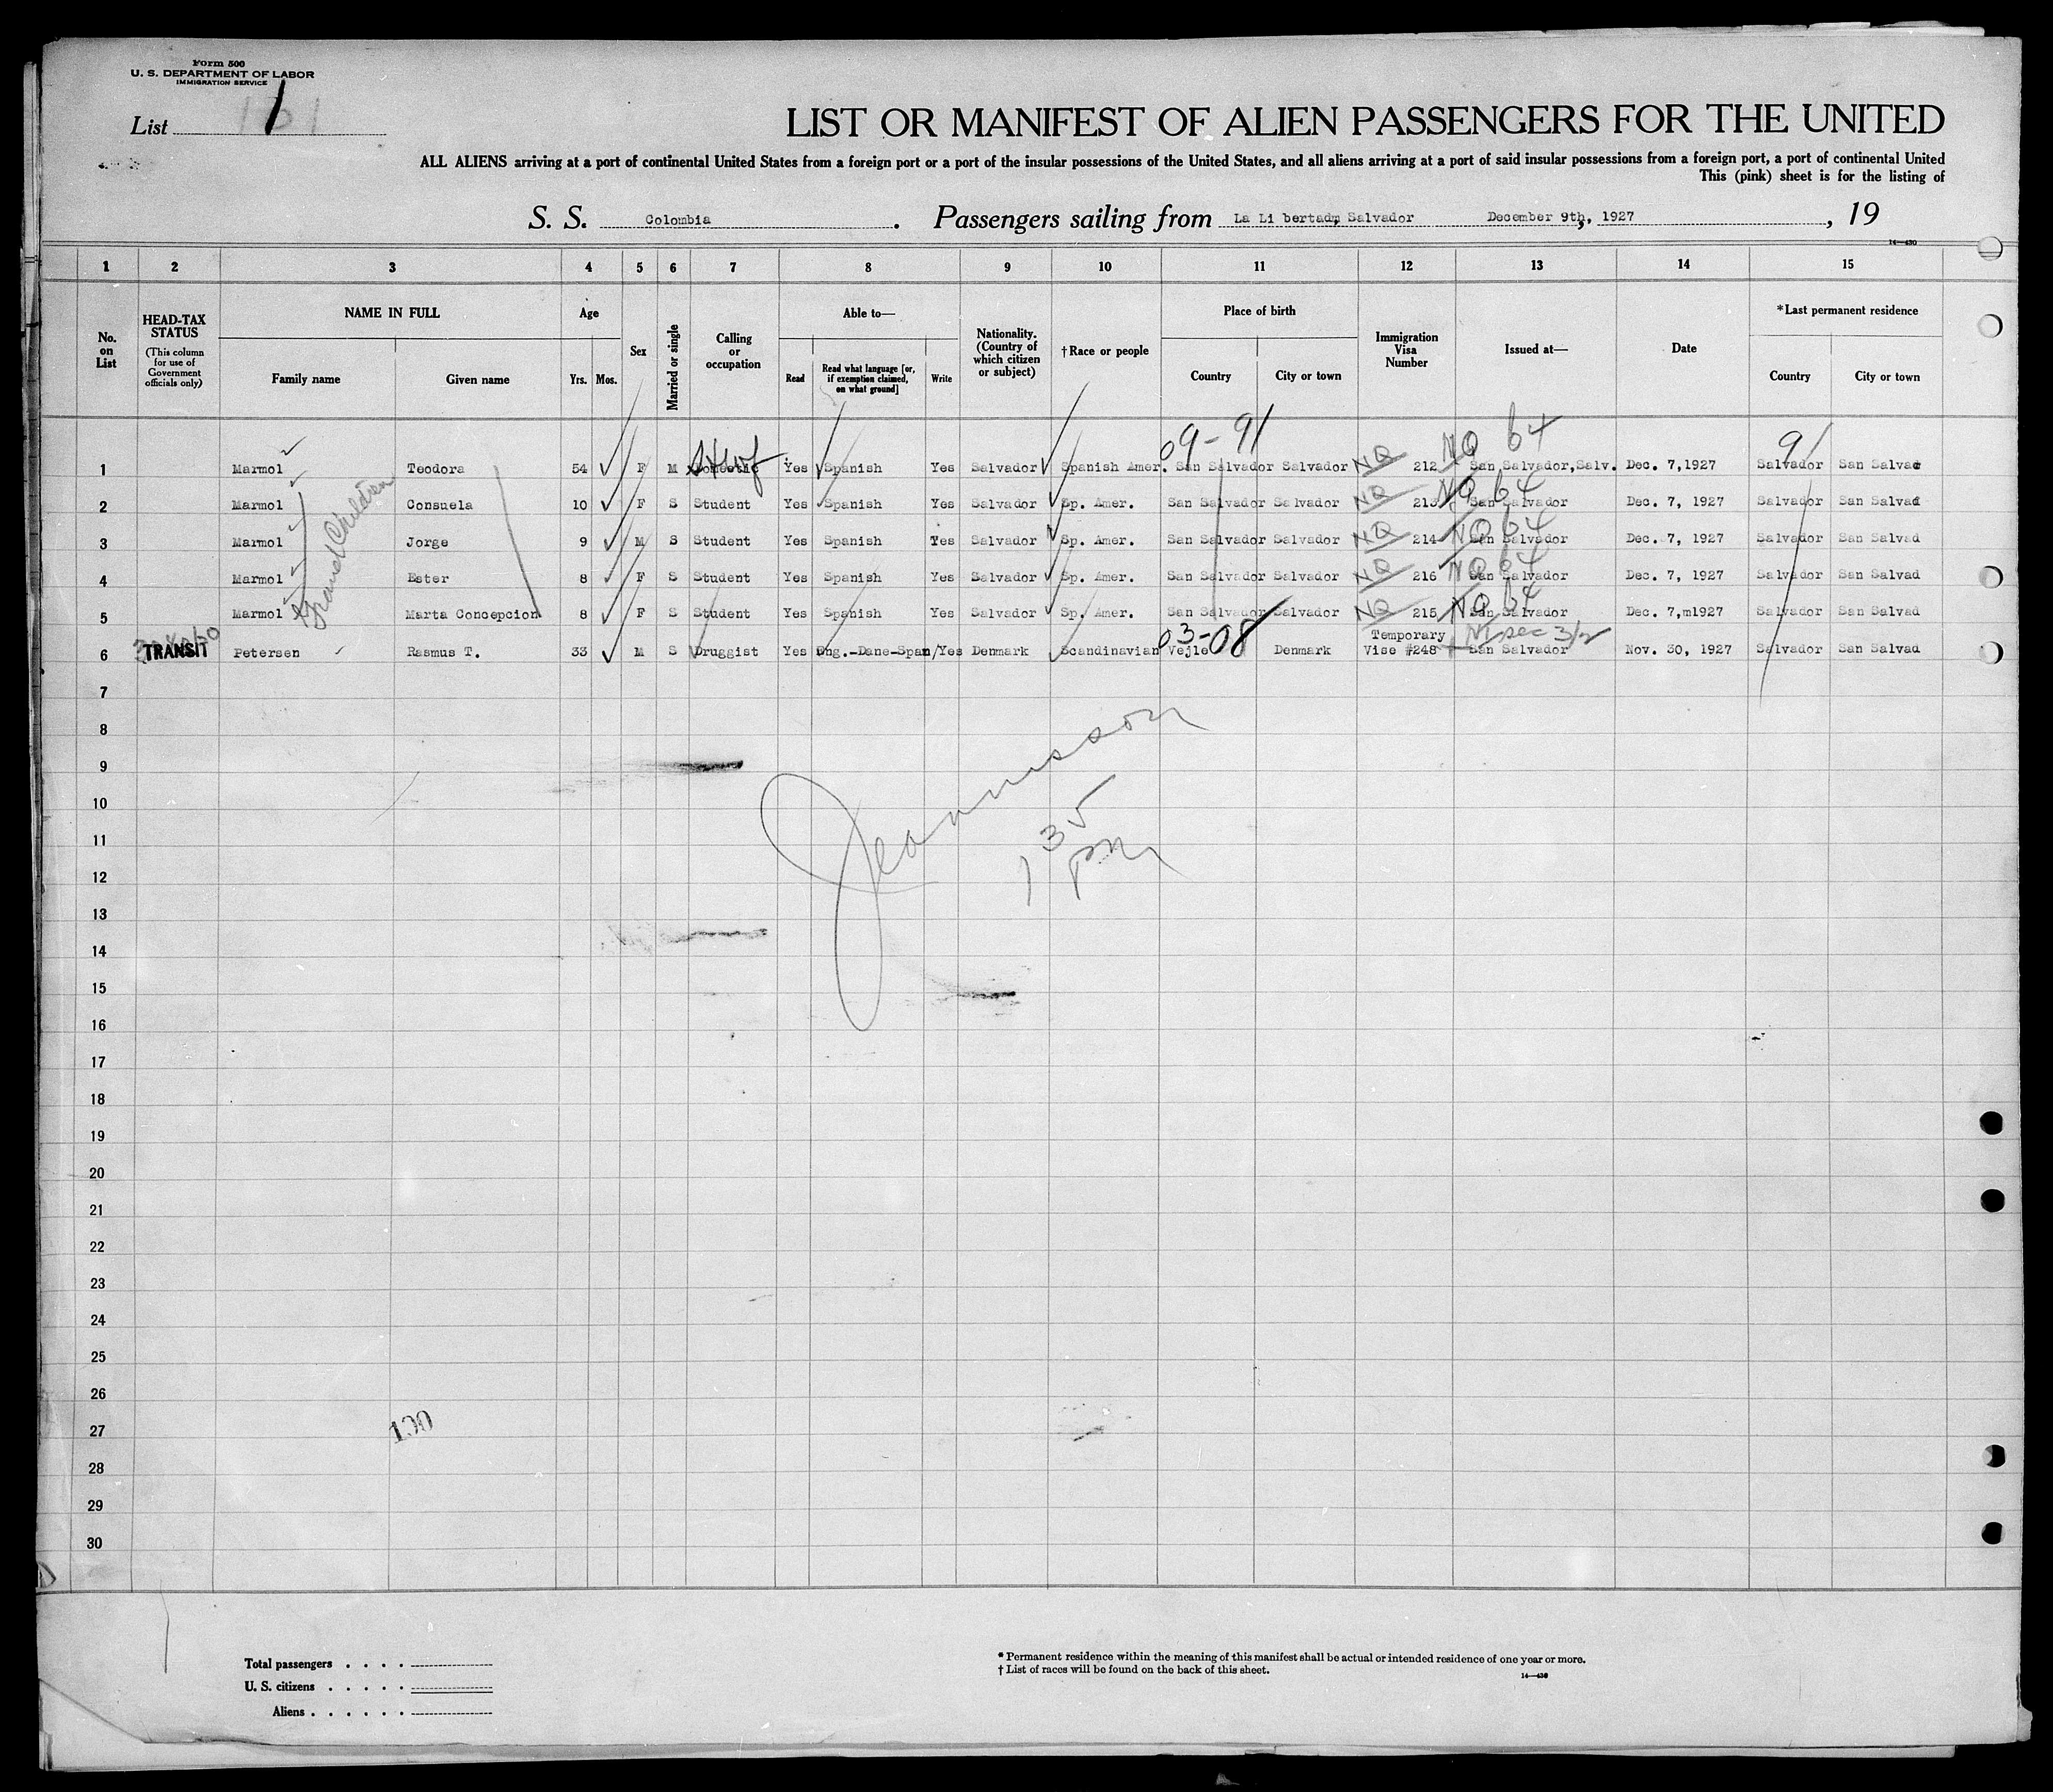 Form 500
U. S. DEPARTMENT OF LABOR
IMMIGRATION SERVICE
List 1
LIST OR MANIFEST OF ALIEN PASSENGERS FOR THE UNITED
ALL ALIENS arriving at a port of continental United States from a foreign port or a port of the insular possessions of the United States, and all aliens arriving at a port of said insular possessions from a foreign port, a port of continental United
This (pink) sheet is for the listing of
S. S. Colombia . Passengers sailing from La Li bertadp Salvador December 9th, 1927 , 19
14—430
1 2 3 4 5 6 7 8 9 10 11 12 13 14 15
No. on List
HEAD-TAX STATUS
(This column for use of Government officials only)
NAME IN FULL
Family name Given name
Age
Yrs. Mos.
Sex
Married or single
Calling or occupation
Able to—
Read
Read what language [or, if exemption claimed, on what ground]
Write
Nationality. (Country of which citizen or subject)
†Race or people
Place of birth
Country City or town
Immigration Visa Number
Issued at—
Date
*Last permanent residence
Country City or town
09-91 NQ 64 91
1 Marmol Teodora 54 F M Domestic Yes Spanish Yes Salvador Spanish Amer. San Salvador Salvador NQ 212 San Salvador,Salv. Dec. 7,1927 Salvador San Salvad
2 Marmol Consuela 10 F S Student Yes Spanish Yes Salvador Sp. Amer. San Salvador Salvador NQ 213 NQ 64 San Salvador Dec. 7, 1927 Salvador San Salvad
3 Marmol Jorge 9 M S Student Yes Spanish Yes Salvador Sp. Amer. San Salvador Salvador NQ 214 NQ 64 San Salvador Dec. 7, 1927 Salvador San Salvad
4 Marmol Ester 8 F S Student Yes Spanish Yes Salvador Sp. Amer. San Salvador Salvador NQ 216 NQ 64 San Salvador Dec. 7, 1927 Salvador San Salvad
5 Marmol Marta Concepcion 8 F S Student Yes Spanish Yes Salvador Sp. Amer. San Salvador Salvador NQ 215 NQ 64 San Salvador Dec. 7,m1927 Salvador San Salvad
Grand Children
03-08 Temporary sec 3/2
6 TRANSIT Petersen Rasmus T. 33 M S Druggist Yes Eng.-Dane-Span/Yes Denmark Scandinavian Vejle Denmark Vise #248 San Salvador Nov. 30, 1927 Salvador San Salvad
7
8
9
10
11
12
13
14
15
16
17
18
19
20
21
22
23
24
25
26
27
28
29
30
1 35
pm
100
Total passengers . . . .
U. S. citizens . . . . .
Aliens . . . . . .
* Permanent residence within the meaning of this manifest shall be actual or intended residence of one year or more.
† List of races will be found on the back of this sheet.
14—430